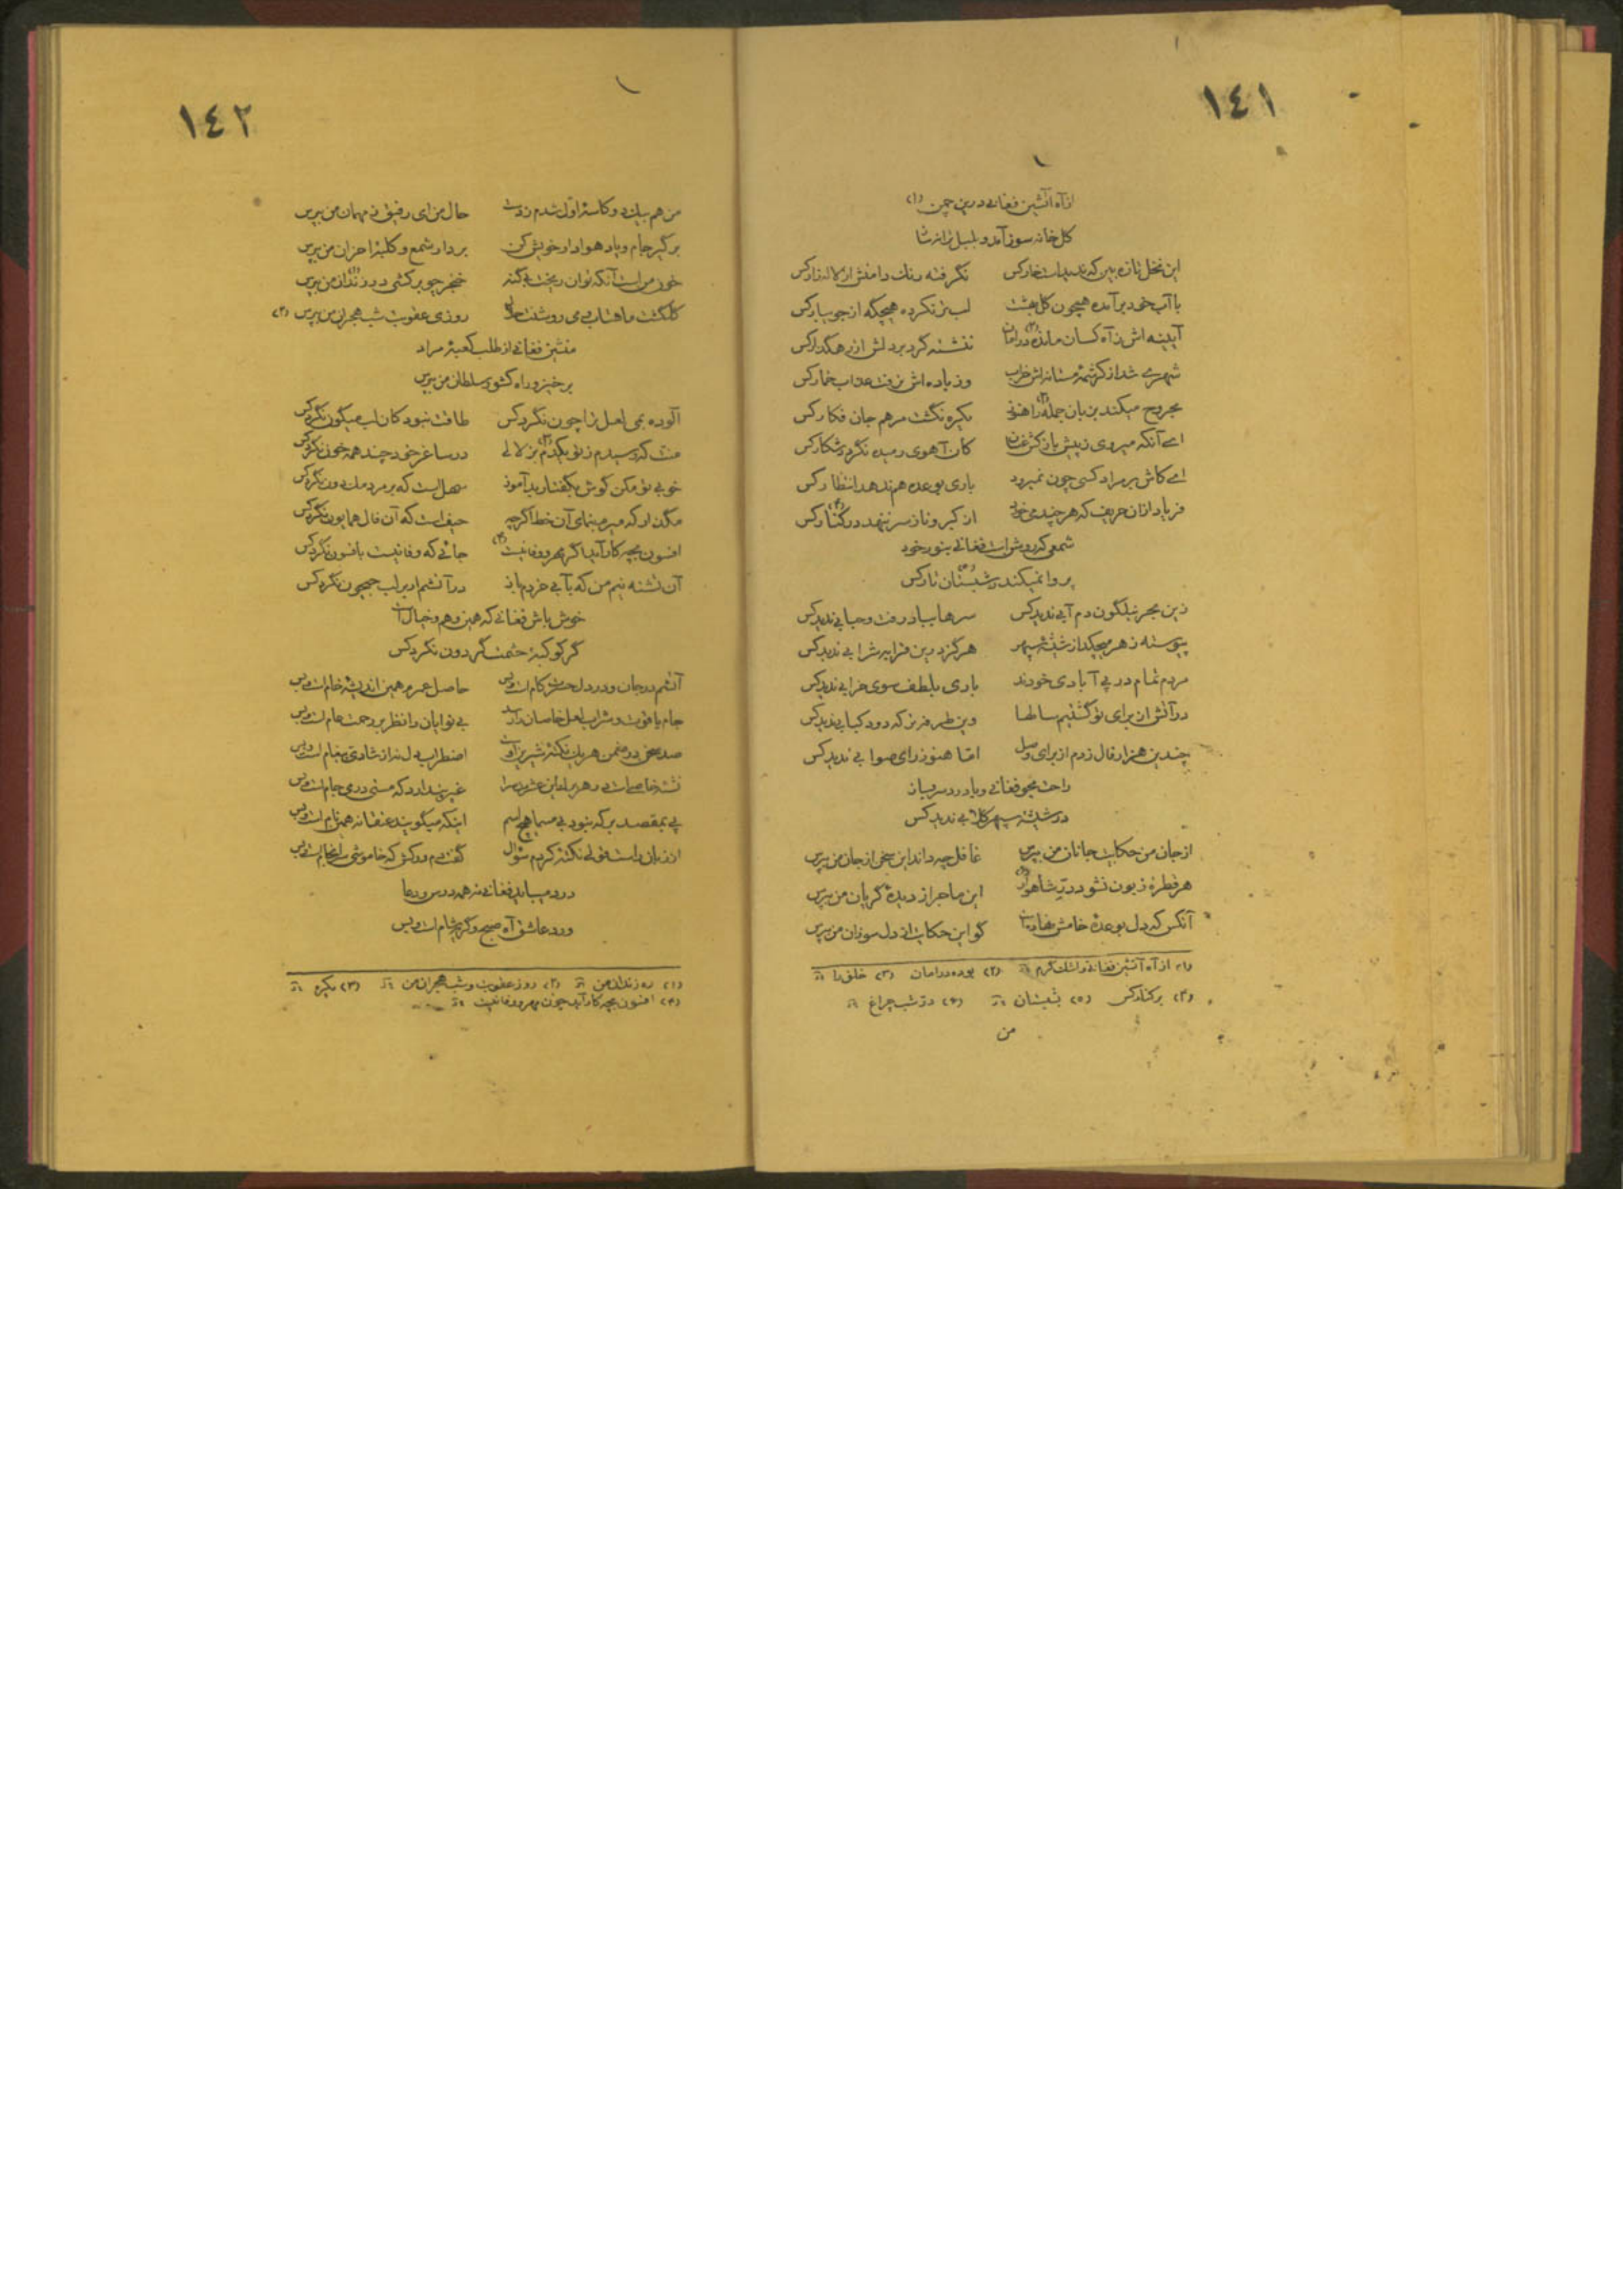 ١٤١
از آه آتشین فغانی درین چمن (١)
کل خانه سوز آمد و بلبل ترانه شا
این نخل تازه بین که ندیدست خار کس نگرفته رنک دامنش از لاله زار کس
با آب خود بر آمده همچون کل بهشت لب تر نکرده هیچگه از جویبار کس
آیینه اش ز آه کسان مانده در امان ننشسته کرد بر دلش از رهگذار کس
شهری شد از کرشمهٔ مستانه اش خراب وز باده اش نرفت عذاب خمار کس
مجروح میکند بزبان جمله را هنوز یکره نگشت مرهم جان فکار کس
ای آنکه میروی ز پیش باز کش عنان کان آهوی رمیده نگردد شکار کس
ای کاش بر مراد کسی چون نمیرود باری بوعده هم ندهد انتظار کس
فریاد از ان حریف که هر چند می خورد از کبر و ناز سر ننهد در کنار کس
شمعی که روشن است فغانی بنور خود
پروا نمیکند بشبستان تار کس
زین بحر نیلگون دم آبی ندید کس سرها بباد رفت و حبابی ندید کس
پیوسته زهر میچکد از شیشهٔ سپهر هرگز درین قرابه شرابی ندید کس
مردم تمام در پی آبادی خودند باری بلطف سوی خرابی ندید کس
در آتش از برای تو گشتیم سالها وین طرفه تر که دود کبابی ندید کس
چندین هزار فال زدم از برای وصل اما هنوز رای صوابی ندید کس
راحت مجو فغانی و با درد سر بساز
در شیشهٔ سپهر کلابی ندید کس
از جان من حکایت جانان من بپرس غافل چه داند این سخن از جان من بپرس
هر قطره ز بون نشود در شاهوار این ماجرا از دیدهٔ گریان من بپرس
آنکس که دل بوعدهٔ خامش نهاده است گو این حکایت از دل سوزان من بپرس
(١) از آه آتشین فغانی و اشک گرم (٢) بوده در امان (٣) خلق را
(٤) بر کنار کس (٥) بشبستان (٦) در شب چراغ
من
١٤٢
من هم پیک دو کاسهٔ اول شدم ز دست حال من ای رفیق ز مهمان من بپرس
برگیر جام و باد هوادار خویش کن بردار شمع و کلبهٔ احزان من بپرس
خون من است آنکه توان ریخت بی گنه خنجر چو برکشی در زندان من بپرس
کلگشت ماهتاب می روشنت حلال روزی عقوبت شب هجران من بپرس (٢)
منشین فغانی از طلب کعبهٔ مراد
برخیز و راه کشور سلطان من بپرس
آلوده بمی لعل ترا چون نگرد کس طاقت نبود کان لب میگون نگرد کس
منت که رسیدم ز تو یکدم بزلالی در ساغر خود چند همه خون نگرد کس
خوبی تو مکن کوش بگفتار بد آموز سهل است که بر مردمک دون نگرد کس
مگذار که میرم بتمنای آن خط اگر چه حیف است که آن فال همایون نگرد کس
افسون بچه کار آید اگر مهر و وفا نیست جائی که وفا نیست بافسون نگرد کس
آن تشنه نیم من که بآبی خردم باز در آتشم ار بر لب جیحون نگرد کس
خوش باش فغانی که همین وهم و خیال است
گر کوکبهٔ حشمت گردون نگرد کس
آتشم در جان و در دل حسرت کام است و بس حاصل عمرم همین اندیشهٔ خام است و بس
جام یاقوت و شراب لعل خاصان را رسد بی نوایان را نظر بر رحمت عام است و بس
صد سخن در ضمن هر یک نکتهٔ شیرین اوست اضطراب دل نه از شادی پیغام است و بس
نشئهٔ خاصی است در هر پیاله این عشرت سرا غیر پندارد که مستی در می جام است و بس
پی بمقصد بر که نبود بی مسما هیچ اسم اینکه میگویند عنقا نه همین نام است و بس
از زبان دانستهٔ نکتهٔ کردم سؤال گفت دم درکش که خاموشی سرانجام است و بس
درد میباید فغانی نه همه درس و دعا
ورد عاشق آه صبح و گریهٔ شام است و بس
(١) ره زندان من (٢) روز عقوبت و شب هجران من (٣) یکره
(٤) افسون بچه کار آید چون مهر و وفا نیست